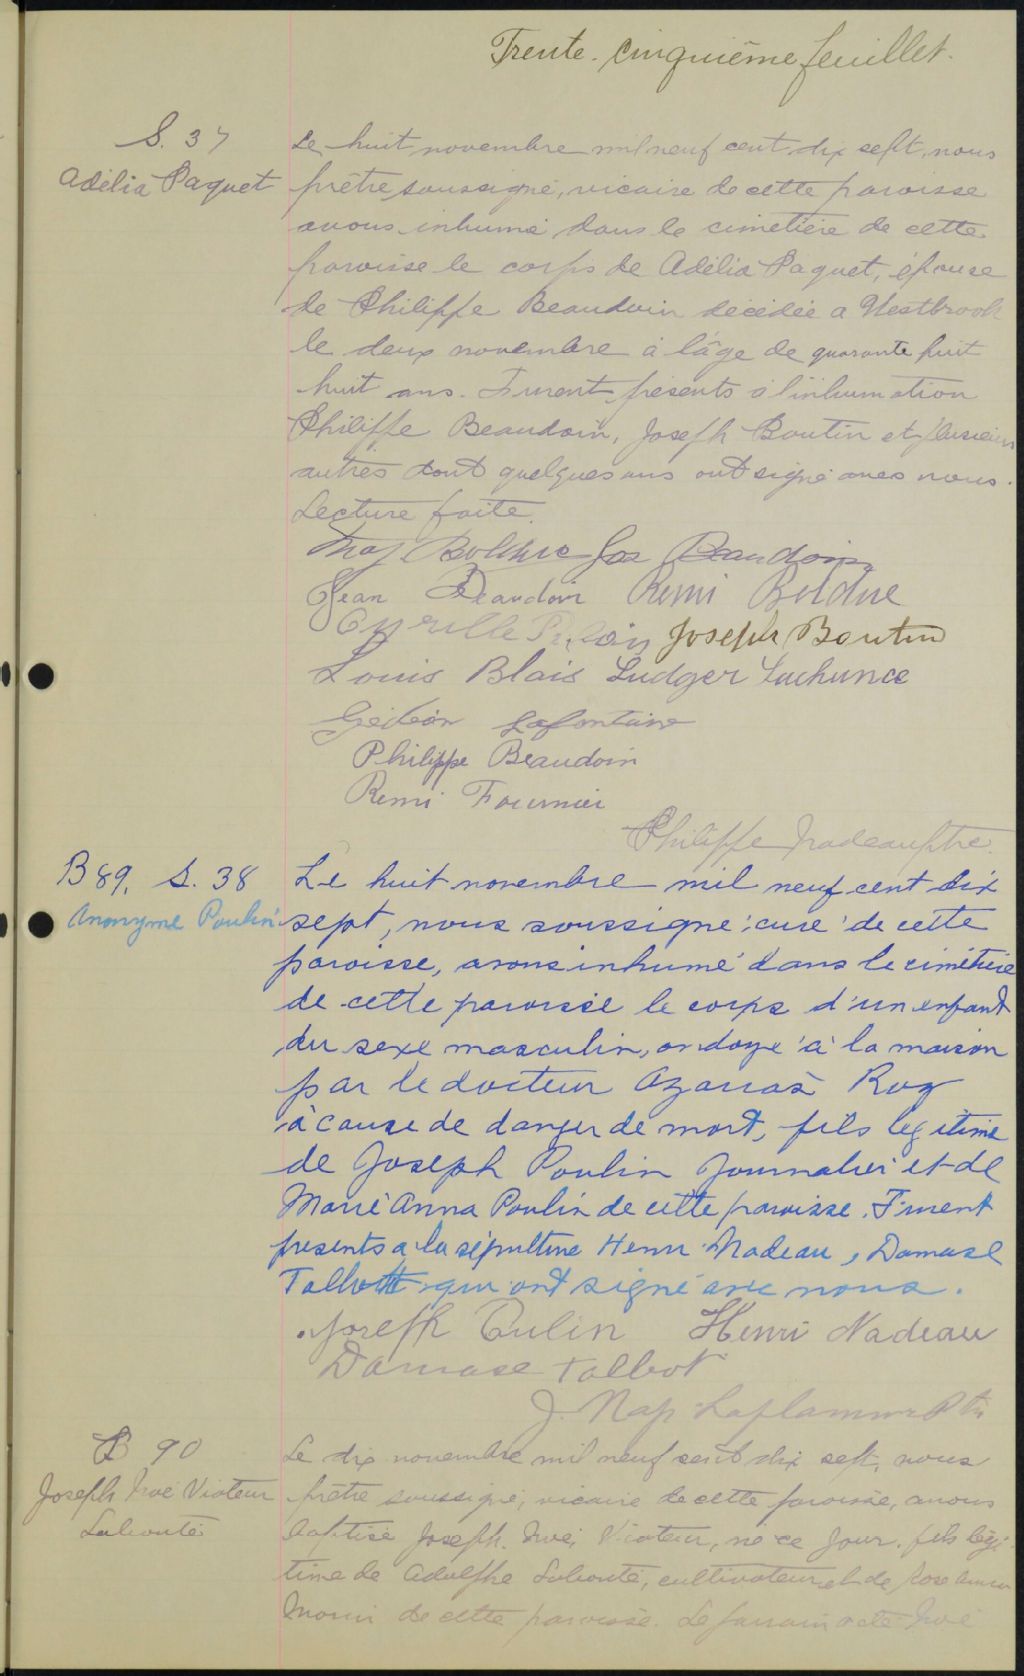 Trente-cinquième feuillet.
S. 37
Adélia Paquet
Le huit novembre mil neuf cent dix sept, nous
prêtre soussigné, vicaire de cette paroisse
avons inhumé dans le cimetière de cette
paroisse le corps de Adélia Paquet, épouse
de Philippe Beaudoin décédée a Westbrook
le deux novembre à l'âge de quarante huit
huit ans. Furent présents à l'inhumation
Philippe Beaudoin, Joseph Boutin et plusieurs
autres dont quelques uns ont signé avec nous.
Lecture faite.
Bolduc Jos Beaudoin
Jean Beaudoin Remi Bolduc
Cyrille Joseph Boutin
Louis Blais Ludger Lachance
Gédéon Lafontaine
Philippe Beaudoin
Remi Fournier
Philippe Nadeau ptre.
B 89. S. 38
Anonyme Poulin
Le huit novembre mil neuf cent dix
sept, nous soussigné curé de cette
paroisse, avons inhumé dans le cimétière
de cette paroisse le corps d'un enfant
du sexe masculin, ondoyé à la maison
par le docteur Azarias Roy
à cause de danger de mort, fils légitime
de Joseph Poulin Journalier et de
Marie Anna Poulin de cette paroisse. Furent
presents a la sépulture Henri Nadeau, Damase
Talbott qui ont signé avec nous.
Joseph Pulin Henri Nadeau
Damase Talbot
J. Nap Laflamme Ptre
B 90
Joseph Noé Viateur
Labonté
Le dix novembre mil neuf cent dix sept, nous
prêtre soussigné, vicaire de cette paroisse, avons
baptisé Joseph, Noé, Viateur, né ce jour, fils légi
time de Adolphe Labonté, cultivateur et de Rose Anna
Morin de cette paroisse. Le parrain a été Noé